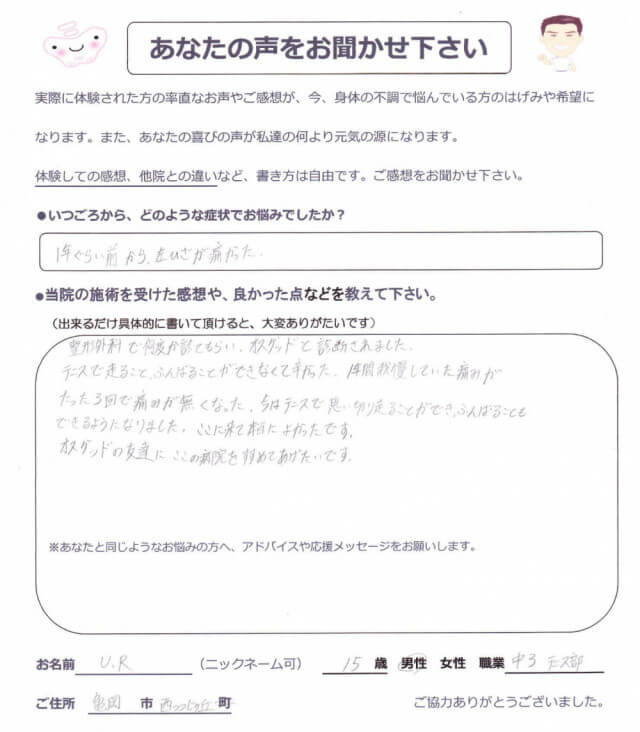 あなたの声をお聞かせ下さい
実際に体験された方の率直なお声やご感想が、今、身体の不調で悩んでいる方のはげみや希望に
なります。また、あなたの喜びの声が私達の何より元気の源になります。
体験しての感想、他院との違いなど、書き方は自由です。ご感想をお聞かせ下さい。
●いつごろから、どのような症状でお悩みでしたか？
1年ぐらい前から、左ひざが痛かった.
●当院の施術を受けた感想や、良かった点などを教えて下さい。
（出来るだけ具体的に書いて頂けると、大変ありがたいです）
整形外科で何度か診てもらい、オスグッドと診断されました.
テニスで走ること、ふんばることができなくて辛かった. 1年間我慢していた痛みが
たった3回で痛みが無くなった. 今はテニスで思い切り走ることができ、ふんばることも
できるようになりました. ここに来て本当によかったです.
オスグッドの友達にここの病院を勧めてあげたいです.
※あなたと同じようなお悩みの方へ、アドバイスや応援メッセージをお願いします。
お名前 U.R （ニックネーム可） 15 歳 男性 女性 職業 中3 テニス部
ご住所 亀岡 市 西つつじヶ丘 町 ご協力ありがとうございました。